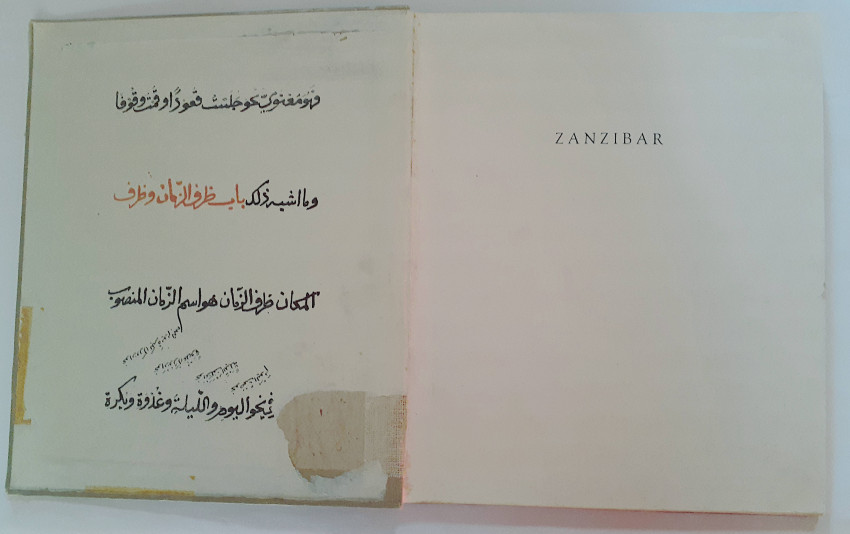 فهو معنوي نحو جلست قعودا وقمت وقوفا
وما اشبه ذلك باب ظرف الزمان وظرف
المكان ظرف الزمان هو اسم الزمان المنصوب
في نحو اليوم والليلة وغدوة وبكرة
ZANZIBAR